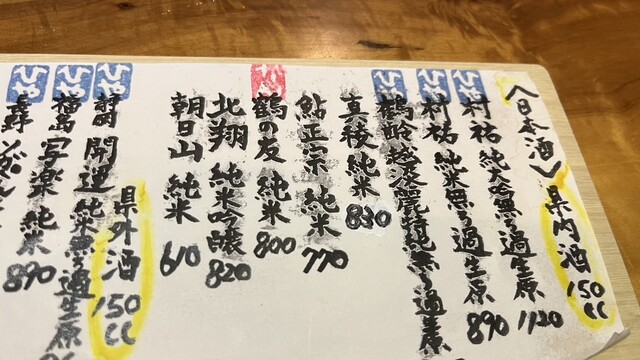 〈日本酒〉県内酒150cc
ひや 村祐 純大吟無ろ過生原 1120
ひや 村祐 純米無ろ過生原 890
ひや 鶴齢 越淡麗純無ろ過生原
真稜 純米 830
鮎正宗 純米 770
鶴の友 純米 800
北翔 純米吟醸 820
朝日山 純米 610
県外酒150cc
ひや 静岡 開運 純米無ろ過生原
ひや 福島 写楽 純米 890
ひや 長野